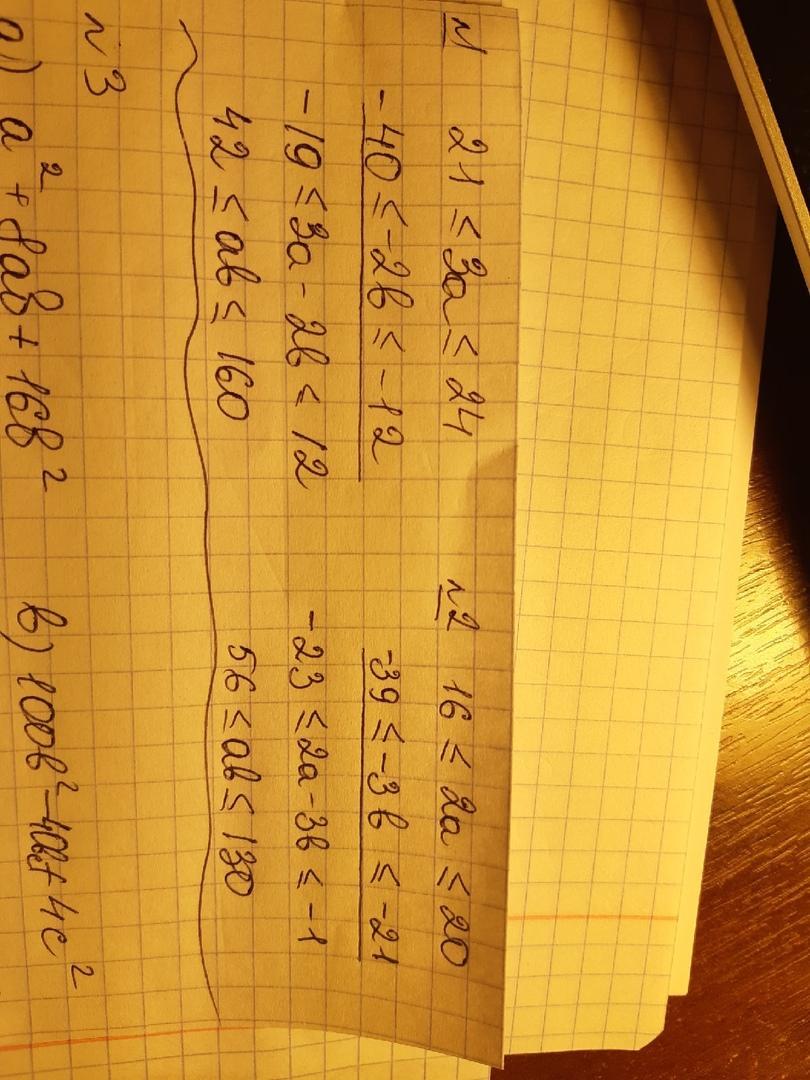 N
21 ≤ 3a ≤ 24
-40 ≤ -2b ≤ -12
-19 ≤ 3a - 2b ≤ 12
42 ≤ ab ≤ 160
№2 16 ≤ 2a ≤ 20
-39 ≤ -3b ≤ -21
-23 ≤ 2a - 3b ≤ -1
56 ≤ ab ≤ 130
№3
a) a² + 8ab + 16b²
b) 100b² - 40bc + 4c²